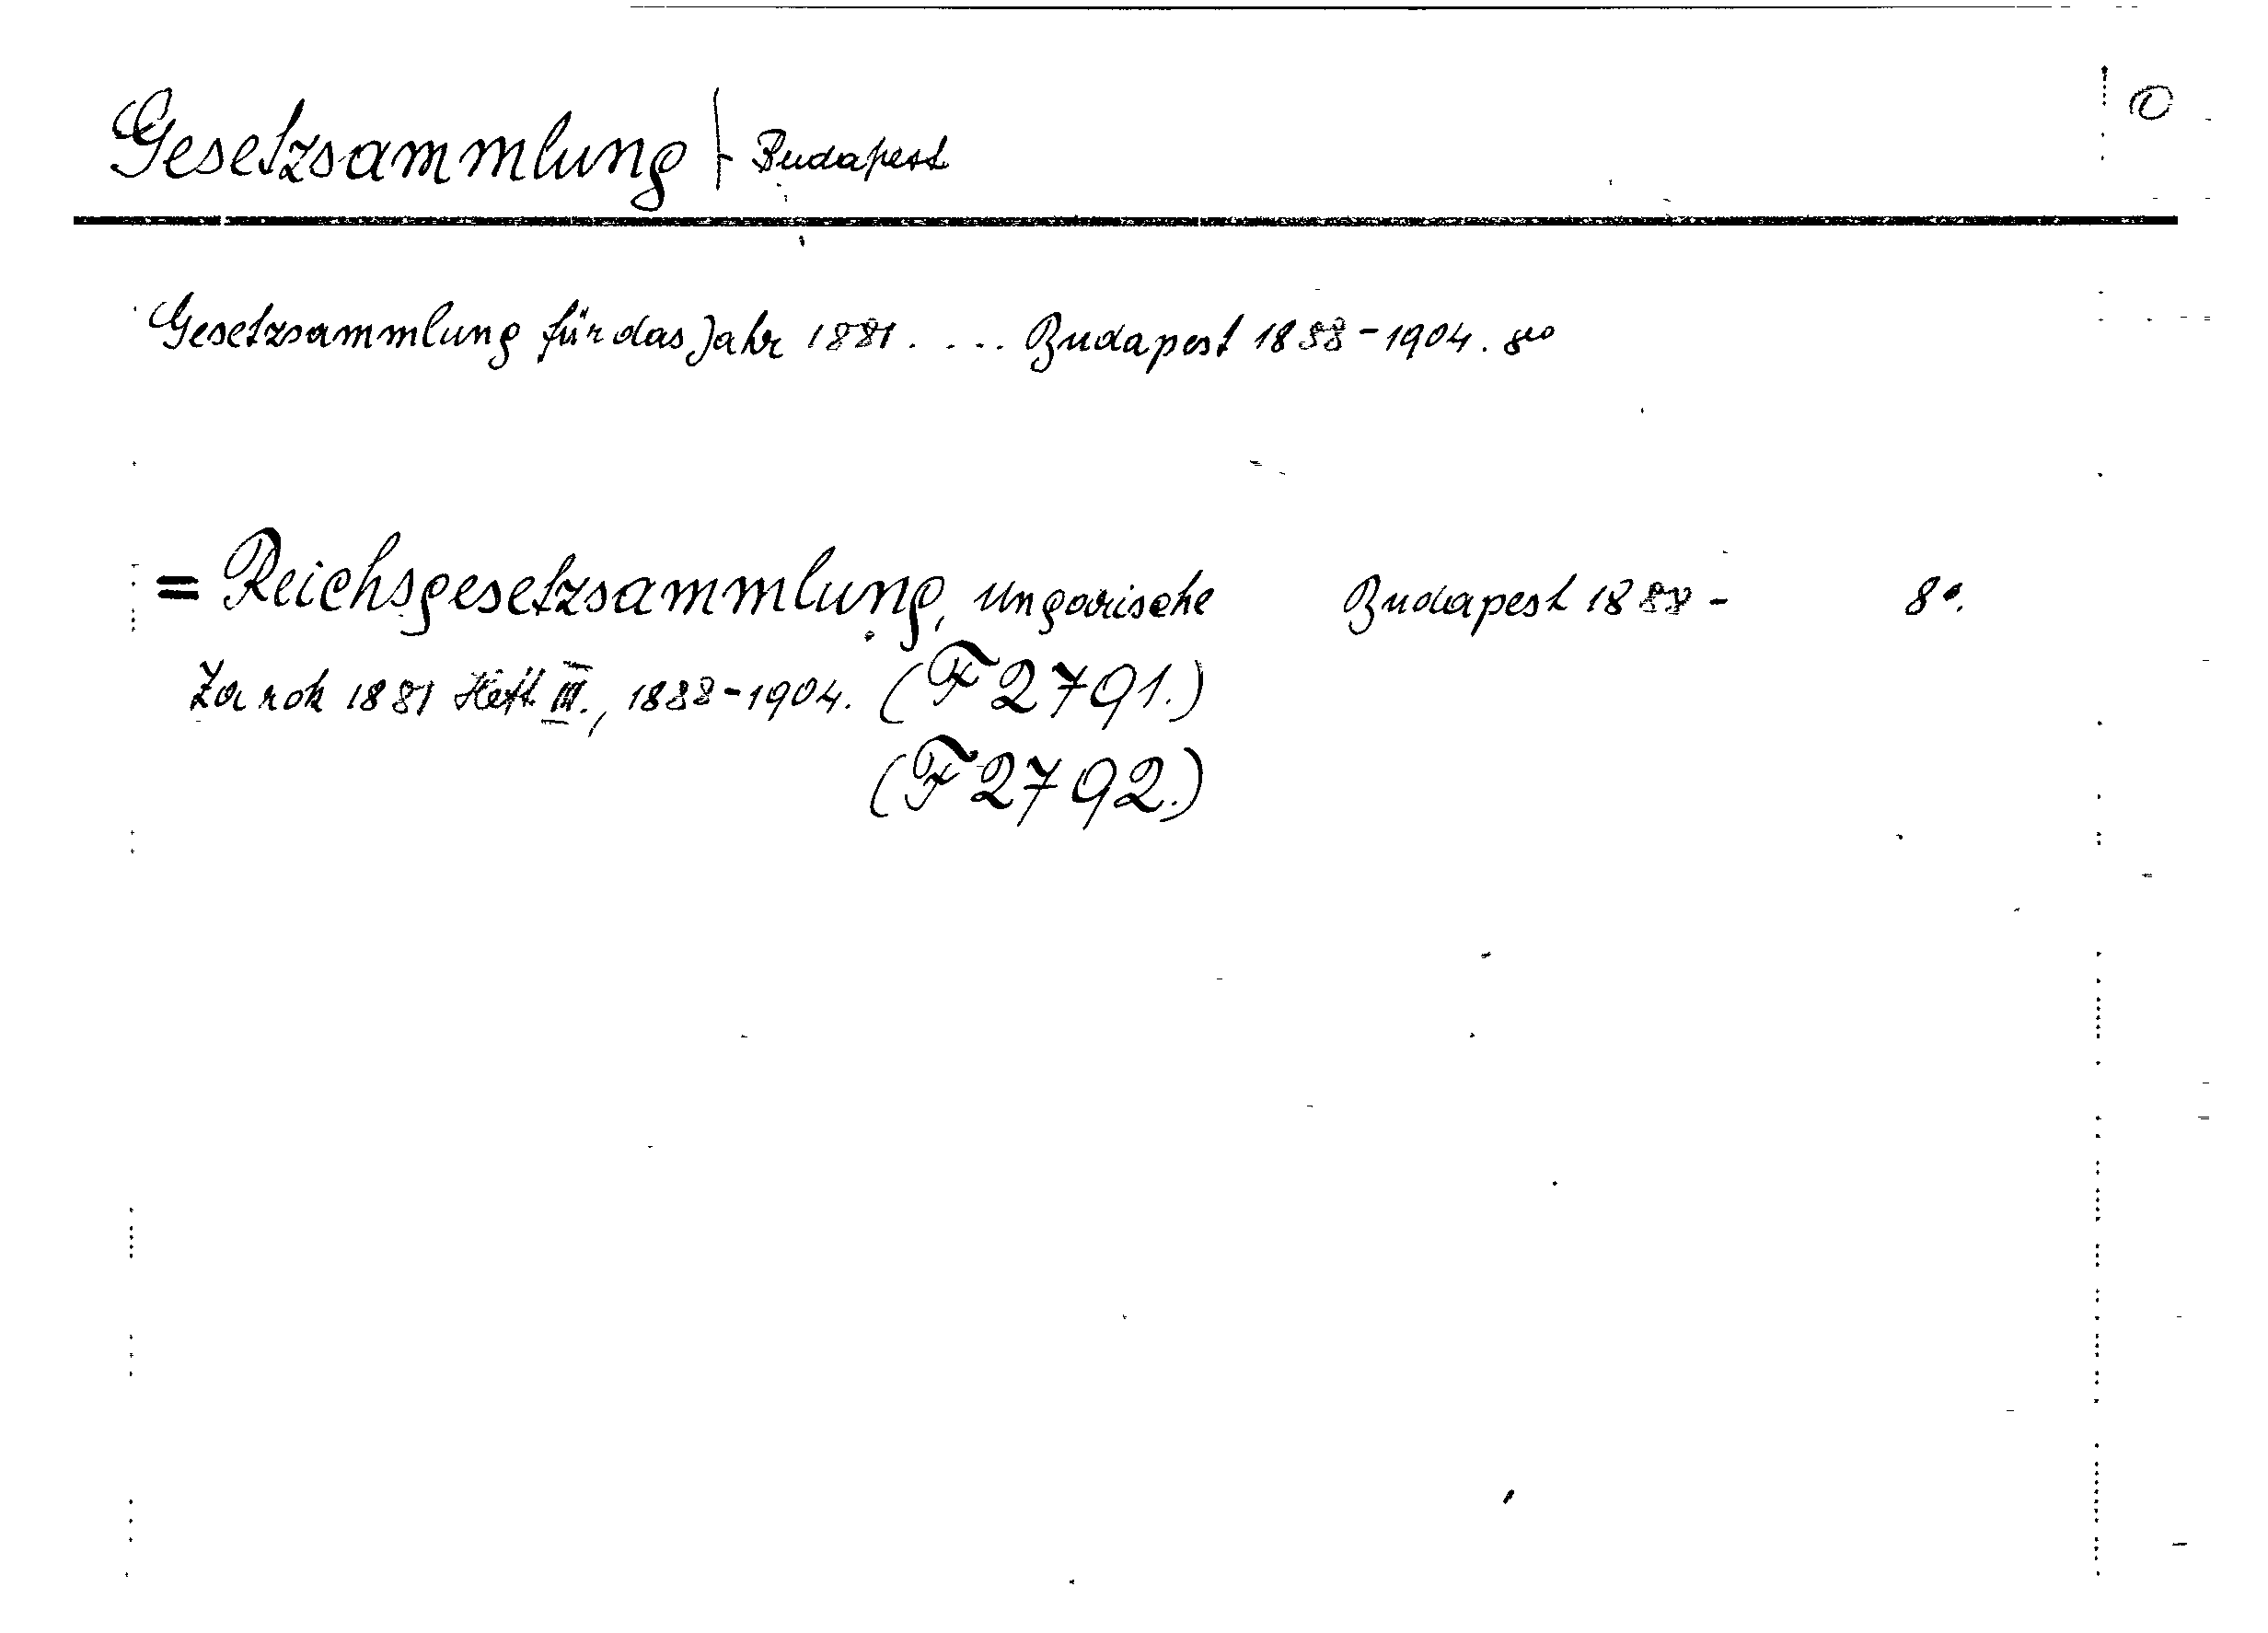 Gesetzsammlung | - Budapest
Gesetzsammlung für das Jahr 1881. ... Budapest 1888-1904. 8vo
= Reichsgesetzsammlung, ungarische Budapest 1888 - 8°.
Za rok 1881 Heft III., 1888-1904. (F 2791.)
(F 2792.)